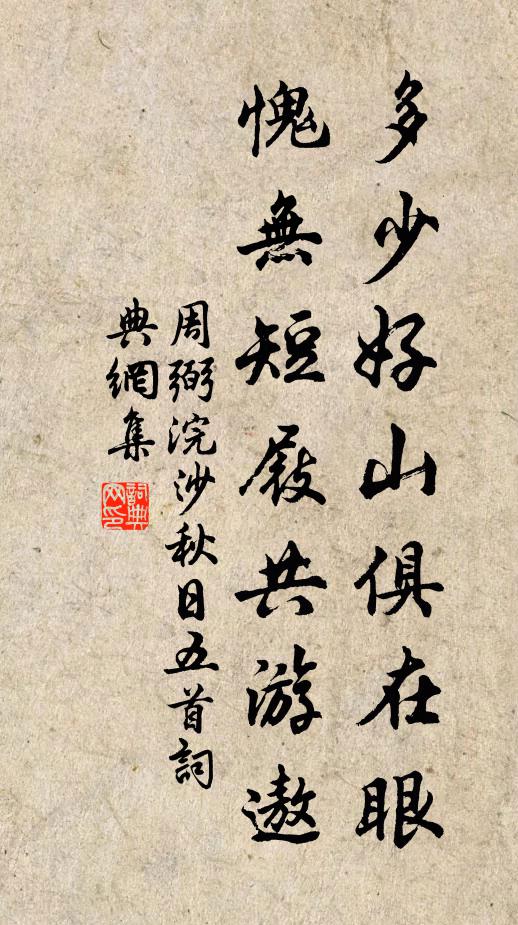 多少好山俱在眼
愧無短屐共游遨
周弼浣沙秋日五首詞
典網集
詞典
网印